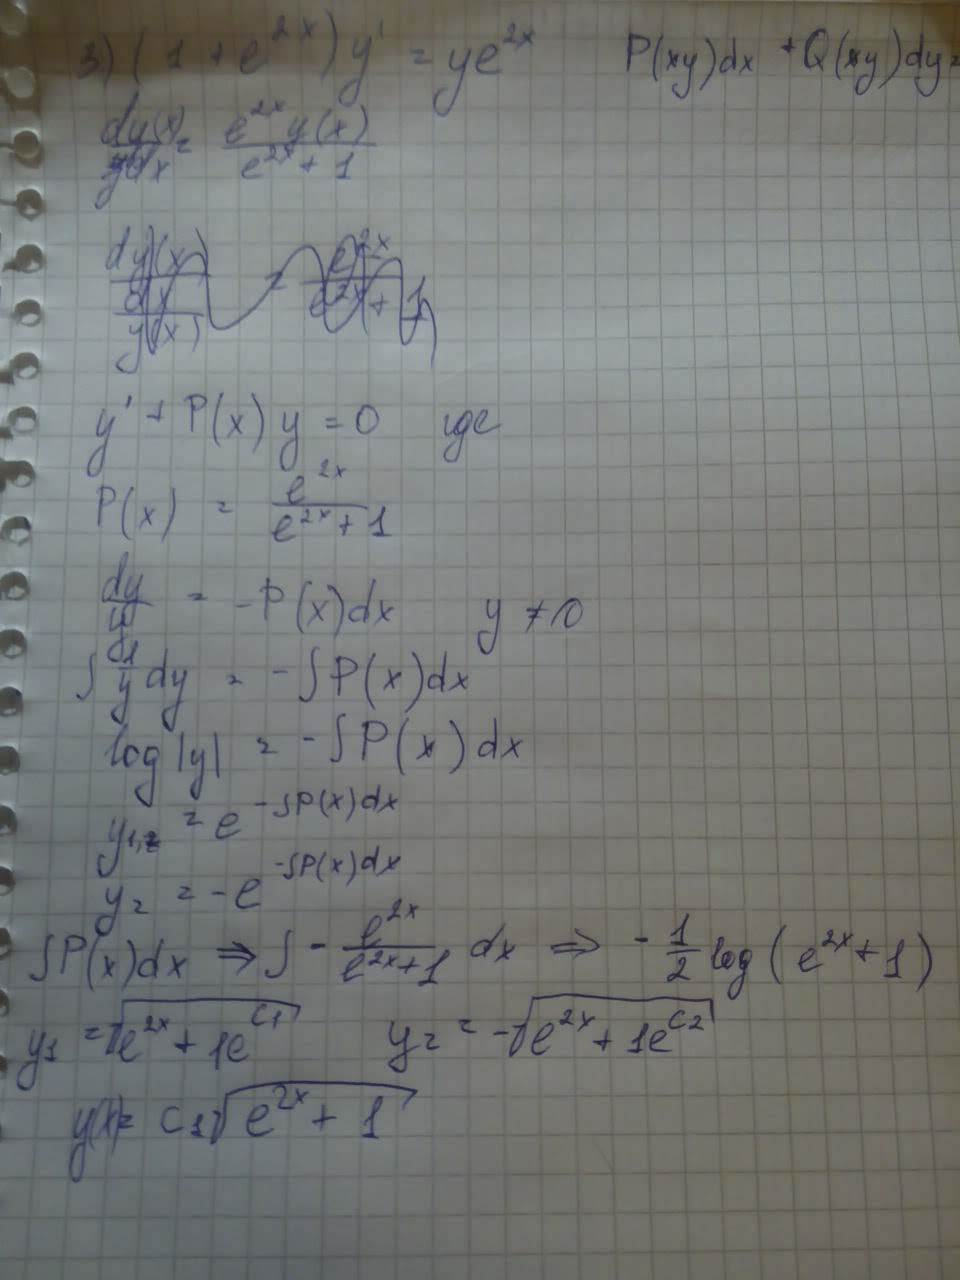 3) (1 + e^{2x}) y' = ye^{2x} P(xy)dx + Q(xy)dy =
dy(x)/dx = e^{2x} y(x) / e^{2x} + 1
y' + P(x) y = 0 где
P(x) = e^{2x} / e^{2x} + 1
dy/y = -P(x)dx y ≠ 0
∫ 1/y dy = -∫ P(x)dx
log |y| = -∫ P(x) dx
y_1 = e^{-∫P(x)dx}
y_2 = -e^{-∫P(x)dx}
∫P(x)dx ⇒ ∫ - e^{2x} / e^{2x}+1 dx ⇒ - 1/2 log (e^{2x} + 1)
y_1 = √(e^{2x} + 1e^{C_1}) y_2 = -√(e^{2x} + 1e^{C_2})
y(x) = C_1 √(e^{2x} + 1)